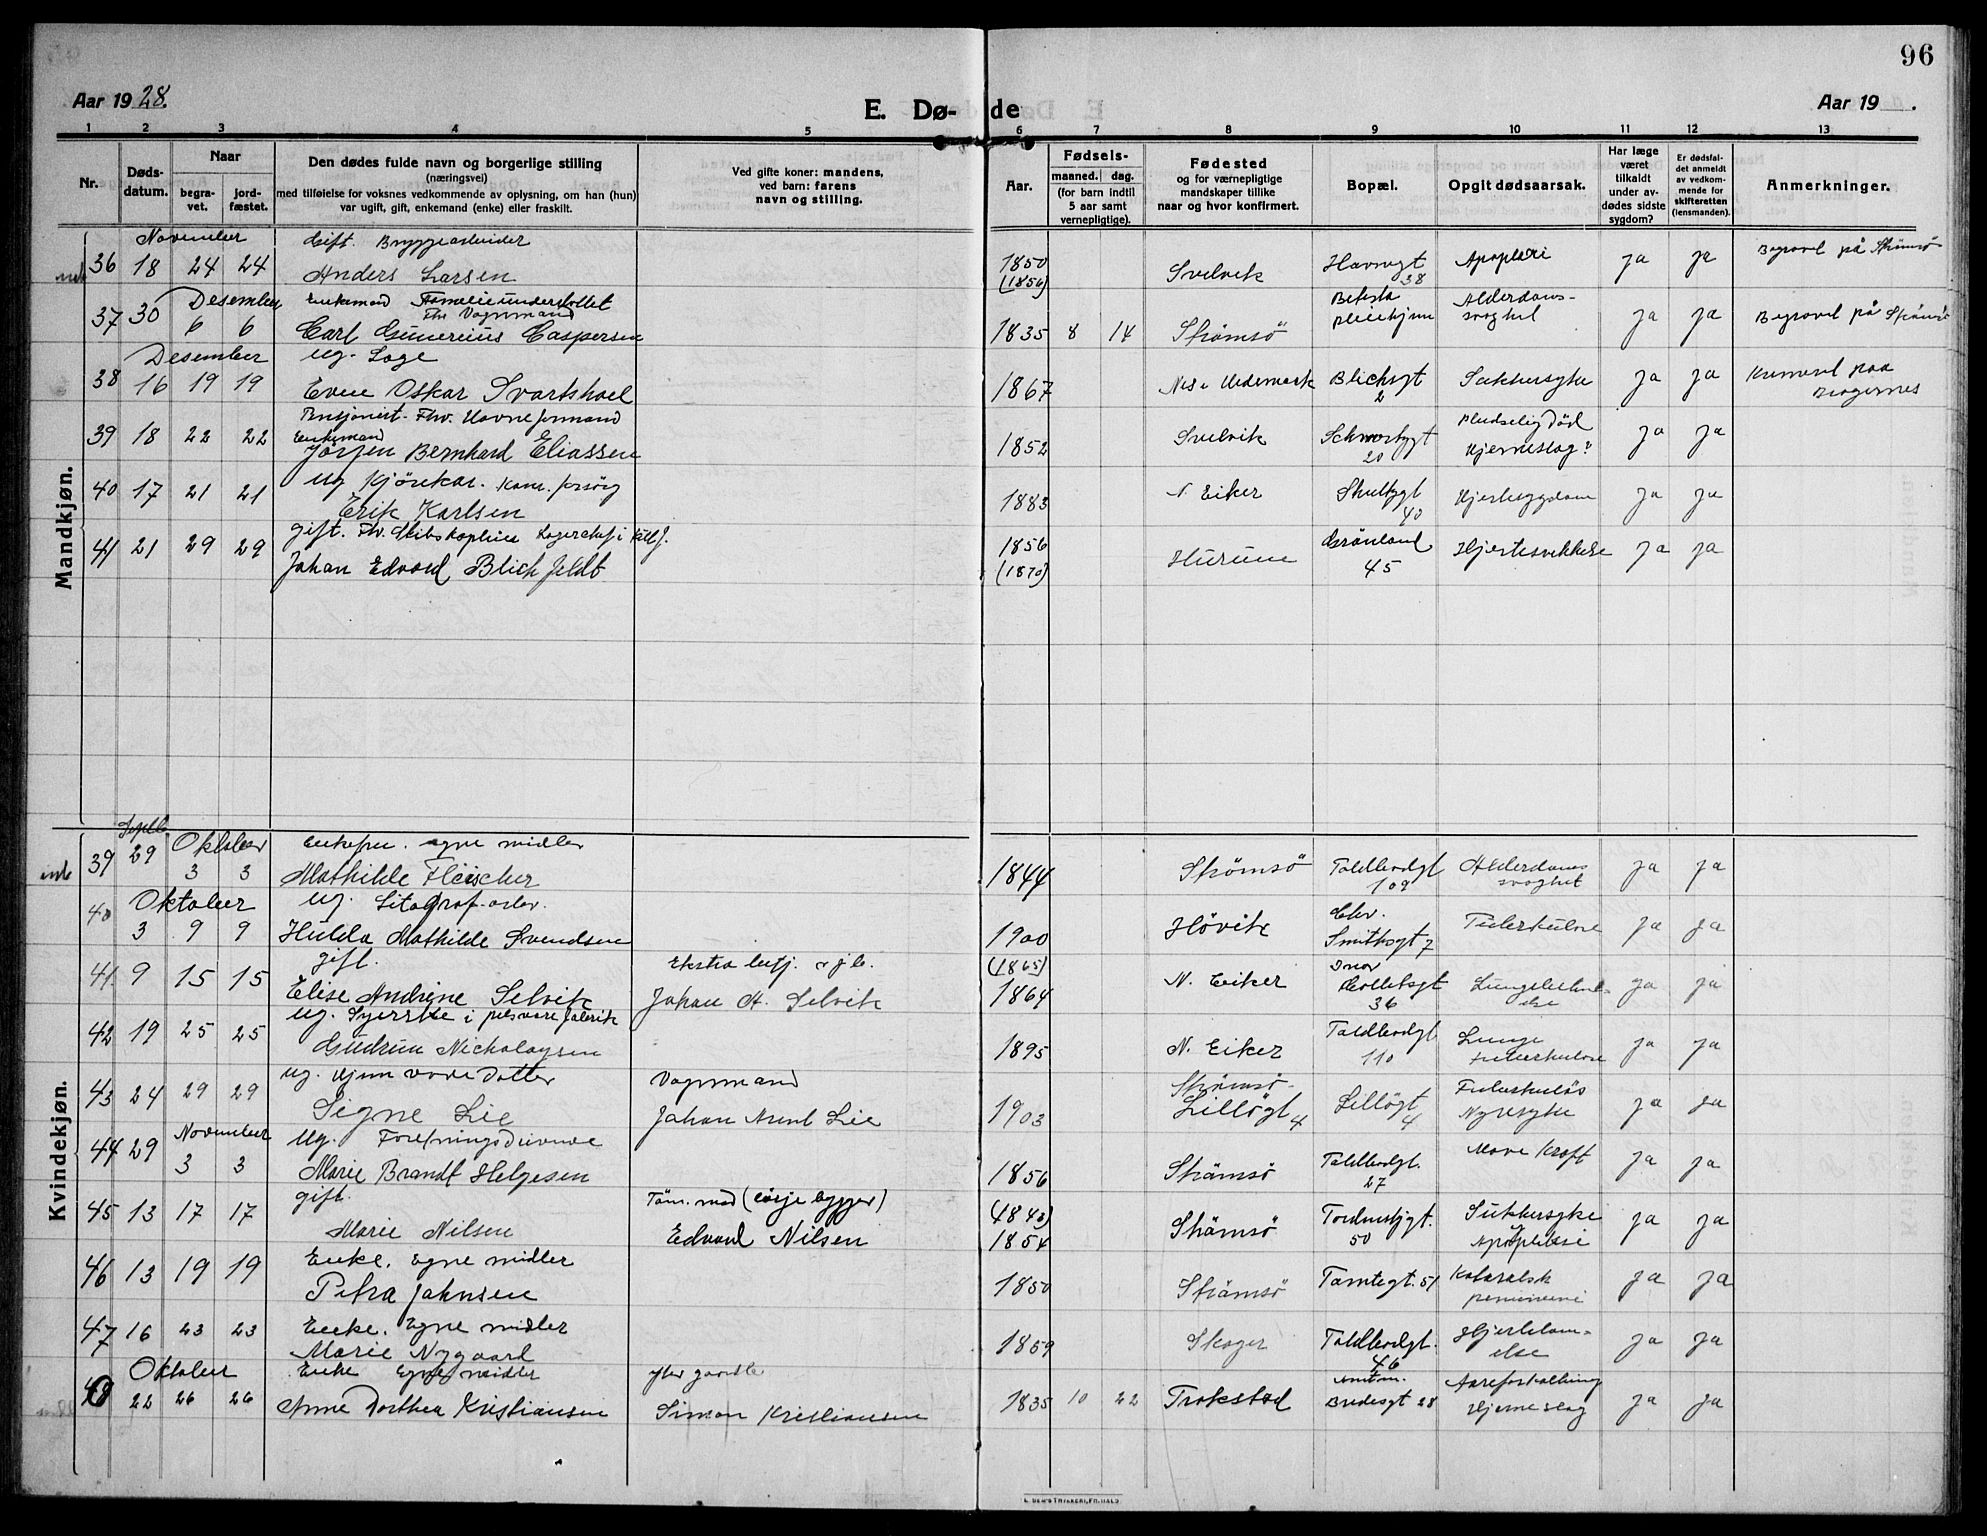 96
Aar 1928.
E. Dø- de
Aar 19 .
1 2 3 4 5 6 7 8 9 10 11 12 13
Nr. Døds-datum. Naar begra-vet. jord-fæstet.
Den dødes fulde navn og borgerlige stilling
(næringsvei)
med tilføielse for voksnes vedkommende av oplysning, om han (hun)
var ugift, gift, enkemand (enke) eller fraskilt.
Ved gifte koner: mandens,
ved barn: farens
navn og stilling.
Aar.
Fødsels-
maaned. dag.
(for barn indtil
5 aar samt
vernepligtige).
Fødested
og for værnepligtige
mandskaper tillike
naar og hvor konfirmert.
Bopæl.
Opgit dødsaarsak.
Har læge
været
tilkaldt
under av-
dødes sidste
sygdom?
Er dødsfal-
det anmeldt
av vedkom-
mende for
skifteretten
(lensmanden).
Anmerkninger.
Mandkjøn.
November Gift. Bryggearbeider
36 18 24 24 Anders Larsen 1850 (1856) Svelvik Havnegt 38 Apoplexi ja ja Begravet på Strømsø
Desember Enkemand Familieunderstøttet
Fhv. Vognmand
37 30 6 6 Carl Gunerius Caspersen 1835 8 14 Strømsø Betesta pleiehjem Alderdoms-svaghet ja ja Begravet på Strømsø
Desember ug.
38 16 19 19 Even Oskar Svartshoel 1867 Nes i Hedemark Blichsgt 2 Sukkersyke ja ja Kremert paa Bragernes
Pensjonist. Fhv. Havneformand
Enkemand
39 18 22 22 Jørgen Bernhard Eliassen 1852 Svelvik Schwartzgt 20 Pludselig Død Hjerneslag? ja ja
ug Kjørekar. Kom. forsørg
40 17 21 21 Erik Karlsen 1883 N. Eiker 40 Hjertesygdom ja ja
gift. Fhv. Skibskaptein Lagerchef i
41 21 29 29 Johan Edvard Blichfeldt 1856 (1870) Hurum Grønland 45 Hjertesvekkelse ja ja
Kvindekjøn.
Septb. Oktober Enkefru. egne midler
39 29 3 3 Mathilde Fleischer 1844 Strømsø Toldbodgt 109 Alderdoms svaghet ja ja
Oktober ug. Litograf-arb.
40 3 9 9 Hulda Mathilde Svendsen 1900 Høvik Chr. Smithsgt 7 Tuberkulose ja ja
gift. Ekstra betj. v. jb.
41 9 15 15 Elise Andrine Selvik Johan A. Selvik (1865) 1864 N. Eiker Collettsgt 36 ja ja
ug. Syerske i pelsvarefabrik
42 19 25 25 Gudrun Nickolaysen 1895 N. Eiker Toldbodgt 110 Lunge tuberkulose ja ja
ug. Hjemmeværende Datter Vognmand
43 24 29 29 Signe Lie Johan Arnt Lie 1903 Strømsø- Lilløgt 4 Lilløgt 4 Tuberkuløs Nyresyke ja ja
November ug. Foretningsdrivende
44 29 3 3 Marie Brandt Helgesen 1856 Strømsø Toldbodgt. 27 Mave Kræft ja ja
gift. Tøm. md (børjebygger)
45 13 17 17 Marie Nilsen Edvard Nilsen (1843) 1854 Strømsø Tordenskjgt. 50 Sukkersyke og Apoplexi ja ja
Enke. Egne midler
46 13 19 19 Petra Johnsen 1850 Strømsø Tomtegt. 51 Kataralsk pneumoni ja ja
Enke. Egne midler
47 16 23 23 Marie Nygaard 1859 Skoger Toldbodgt. 46 Hjertelam-else ja ja
Oktober Enke Egne midler efter gaardb.
48 22 26 26 Anne Dorthea Kristiansen Simon Kristiansen 1835 10 22 Trøkstad Amtm. Bredesgt 28 Aareforkalkning Hjerneslag ja ja